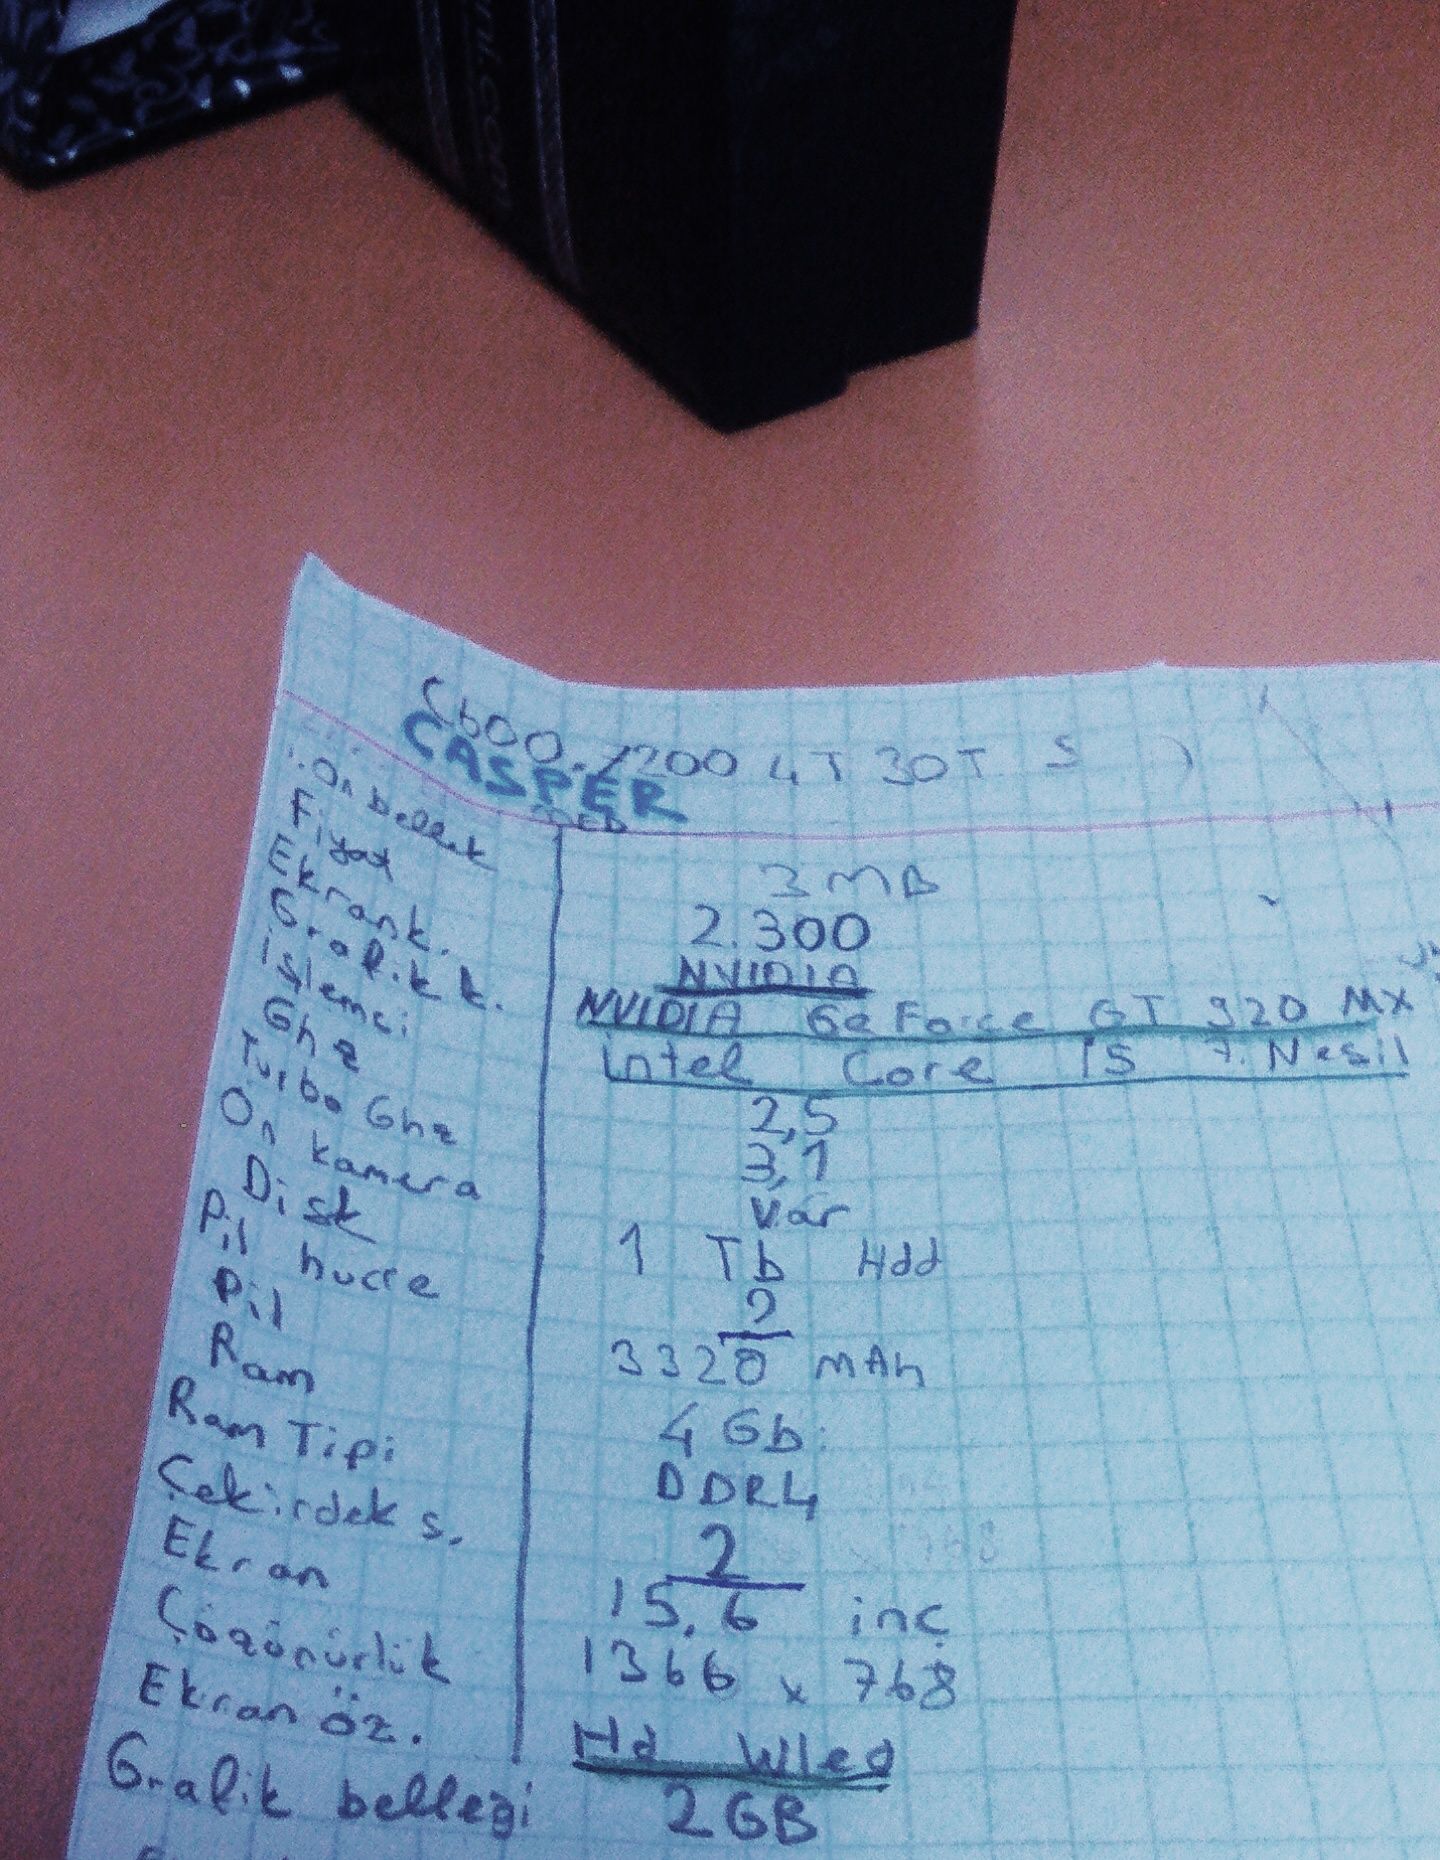 C600.7200 4T 30T S
CASPER
Ön bellek 3 MB
Fiyat 2.300
Ekran k. NVIDIA
Grafik k. NVIDIA GeForce GT 920 MX
İşlemci intel Core i5 7. Nesil
Ghz 2,5
Turbo Ghz 3,1
Ön kamera Var
Disk 1 Tb Hdd
Pil hücre 2
Pil 3320 mAh
Ram 4 Gb
Ram Tipi DDR4
Çekirdek s. 2
Ekran 15,6 inç
Çözünürlük 1366 x 768
Ekran öz. Hd Wled
Grafik belleği 2GB